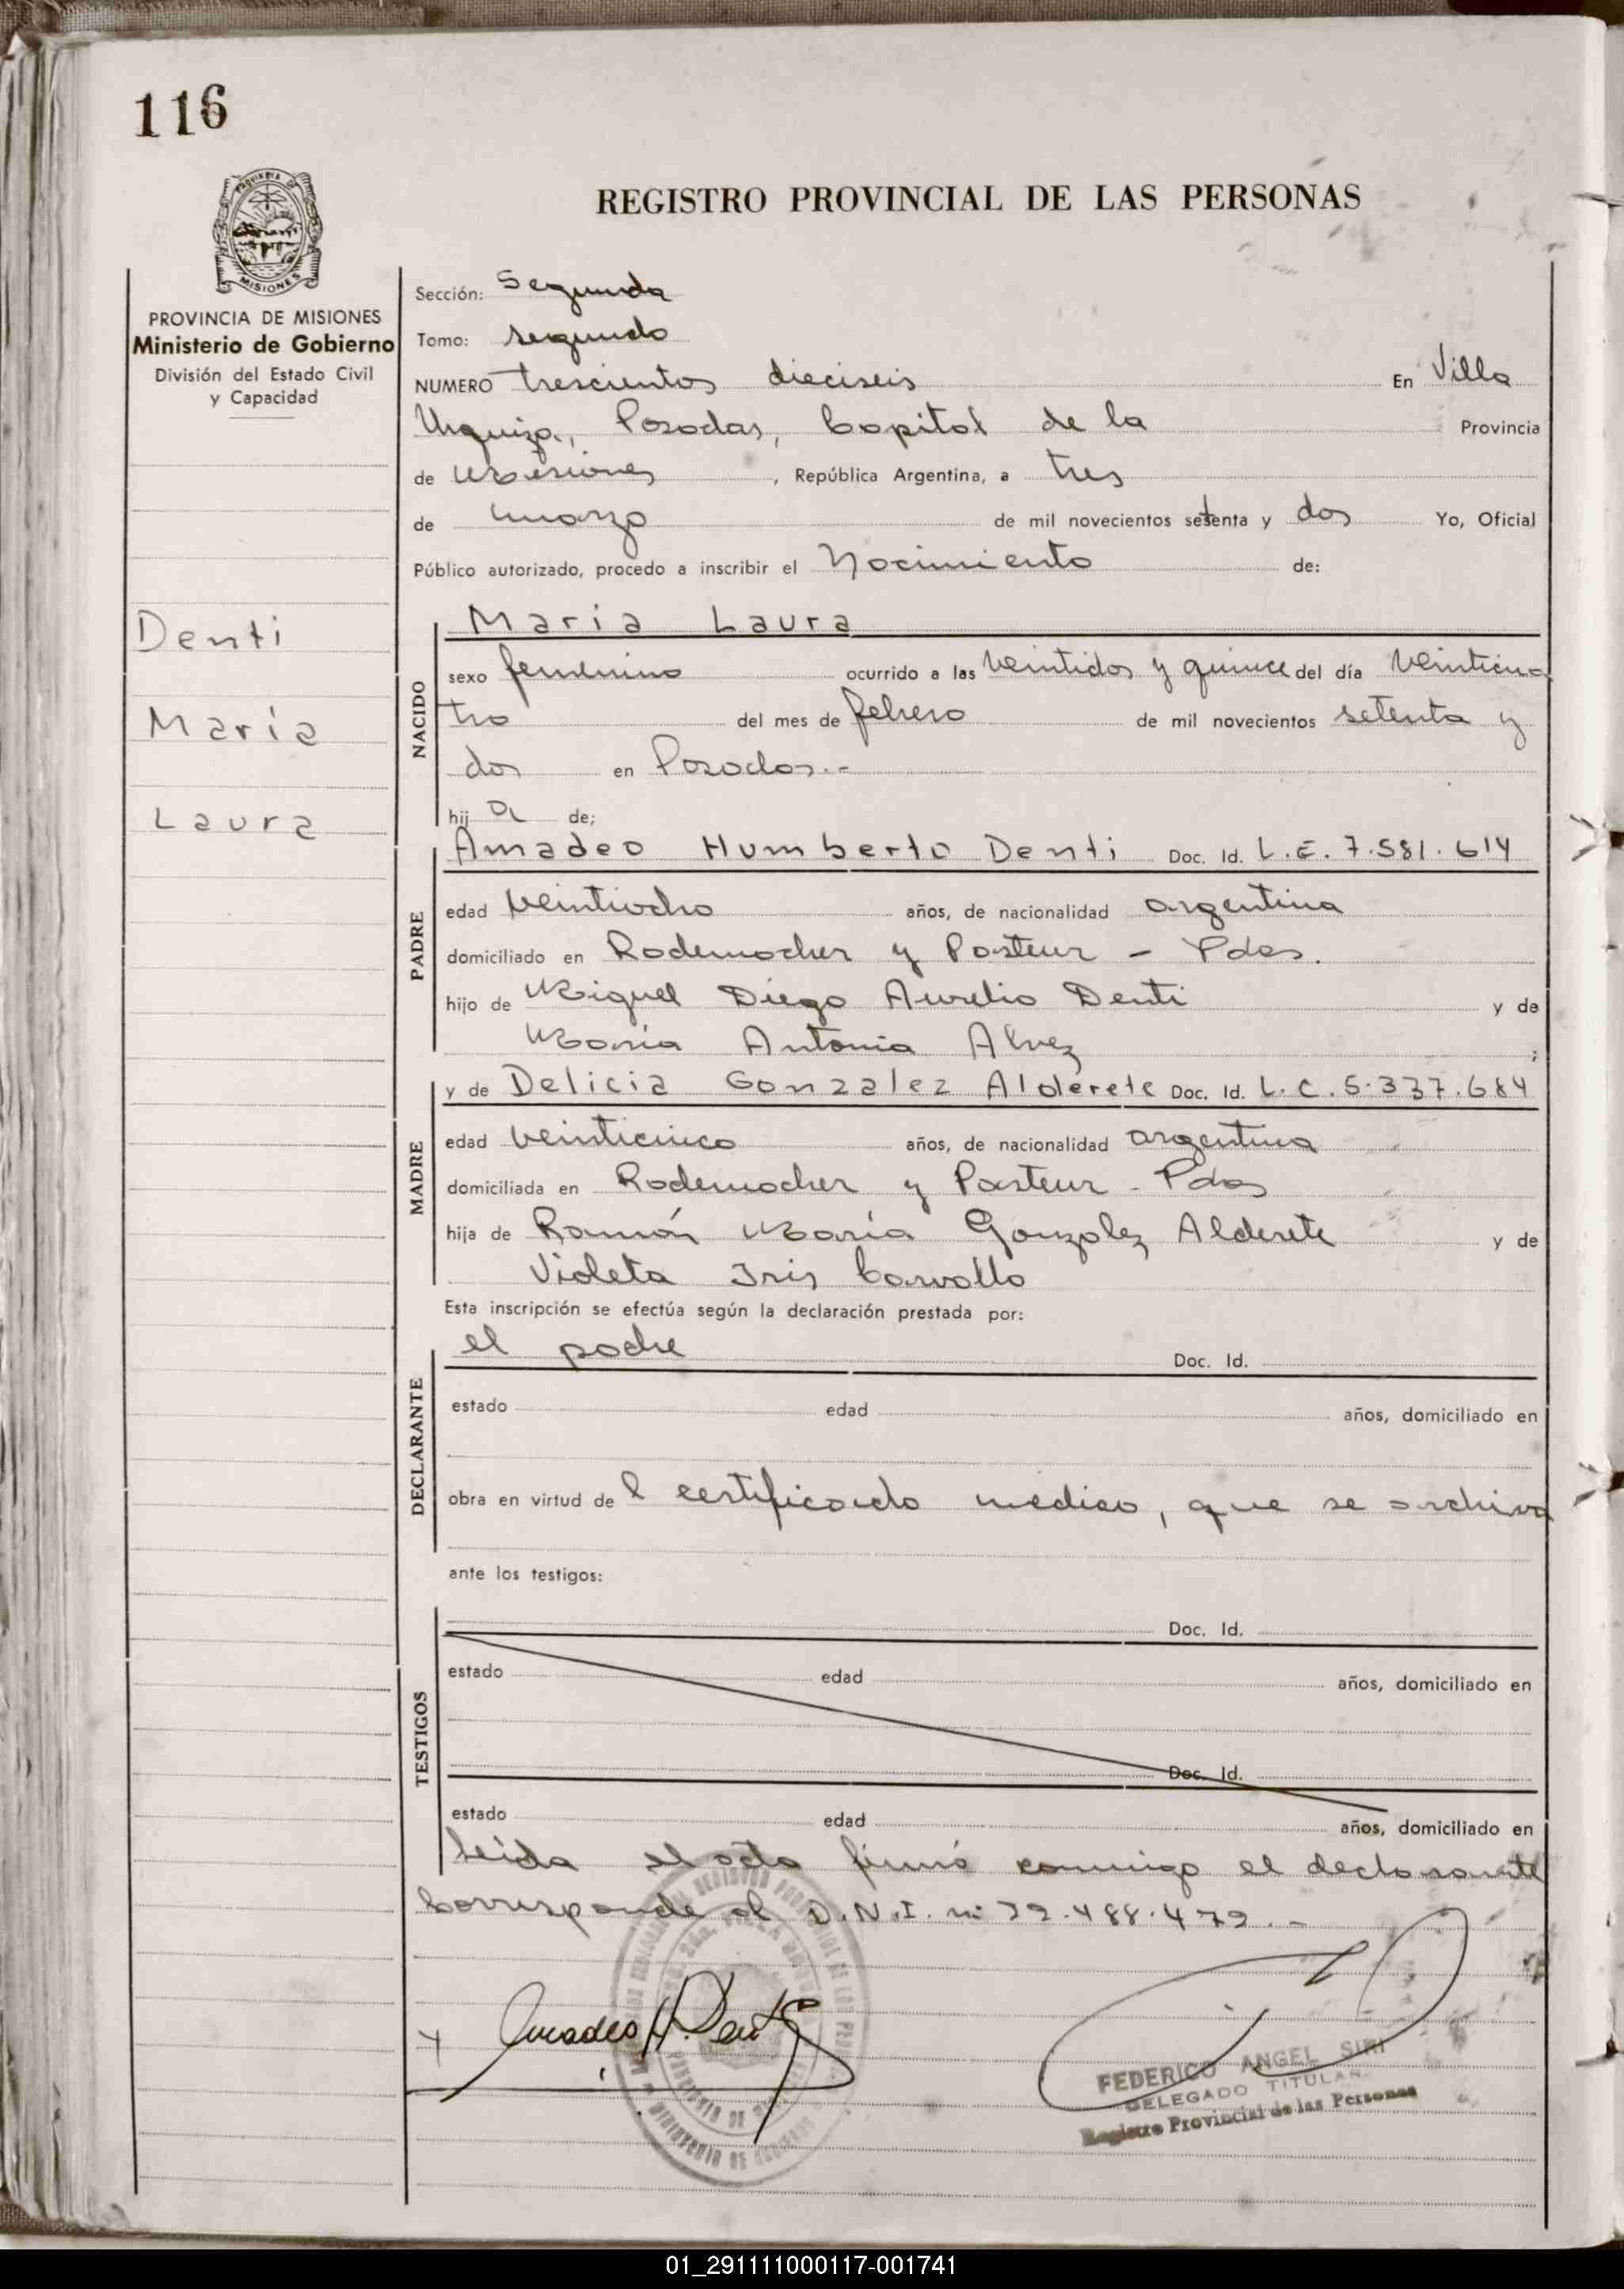 116
REGISTRO PROVINCIAL DE LAS PERSONAS
MISIONES
PROVINCIA DE MISIONES
Ministerio de Gobierno
División del Estado Civil
y Capacidad
Denti
María
Laura
Sección: Segunda
Tomo: segundo
NUMERO trescientos dieciseis En Villa
Urquiza, Posadas, Capital de la Provincia
de Misiones, República Argentina, a tres
de marzo de mil novecientos setenta y dos Yo, Oficial
Público autorizado, procedo a inscribir el Nacimiento de:
NACIDO
Maria Laura
sexo femenino ocurrido a las veintidos y quince del día veinticua
tro del mes de febrero de mil novecientos setenta y
dos en Posadas.-
hija de;
PADRE
Amadeo Humberto Denti Doc. Id. L.E. 7.581.614
edad veintiocho años, de nacionalidad argentina
domiciliado en Rademacher y Pasteur - Pdas.
hijo de Miguel Diego Aurelio Denti y de
María Antonia Alvez ;
MADRE
y de Delicia Gonzalez Alderete Doc. Id. L.C. 5.337.684
edad veinticinco años, de nacionalidad argentina
domiciliada en Rademacher y Pasteur - Pdas
hija de Ramón María Gonzalez Alderete y de
Violeta Iris Carvallo
Esta inscripción se efectúa según la declaración prestada por:
DECLARANTE
el padre Doc. Id.
estado edad años, domiciliado en
obra en virtud del certificado medico, que se archiva
ante los testigos:
TESTIGOS
Doc. Id.
estado edad años, domiciliado en
Doc. Id.
estado edad años, domiciliado en
Leida el acta firmó conmigo el declarante
Corresponde al D.N.I. nº 22.488.479.-
Amadeo H. Denti
FEDERICO ANGEL SIRI
DELEGADO TITULAR
Registro Provincial de las Personas
01_291111000117-001741